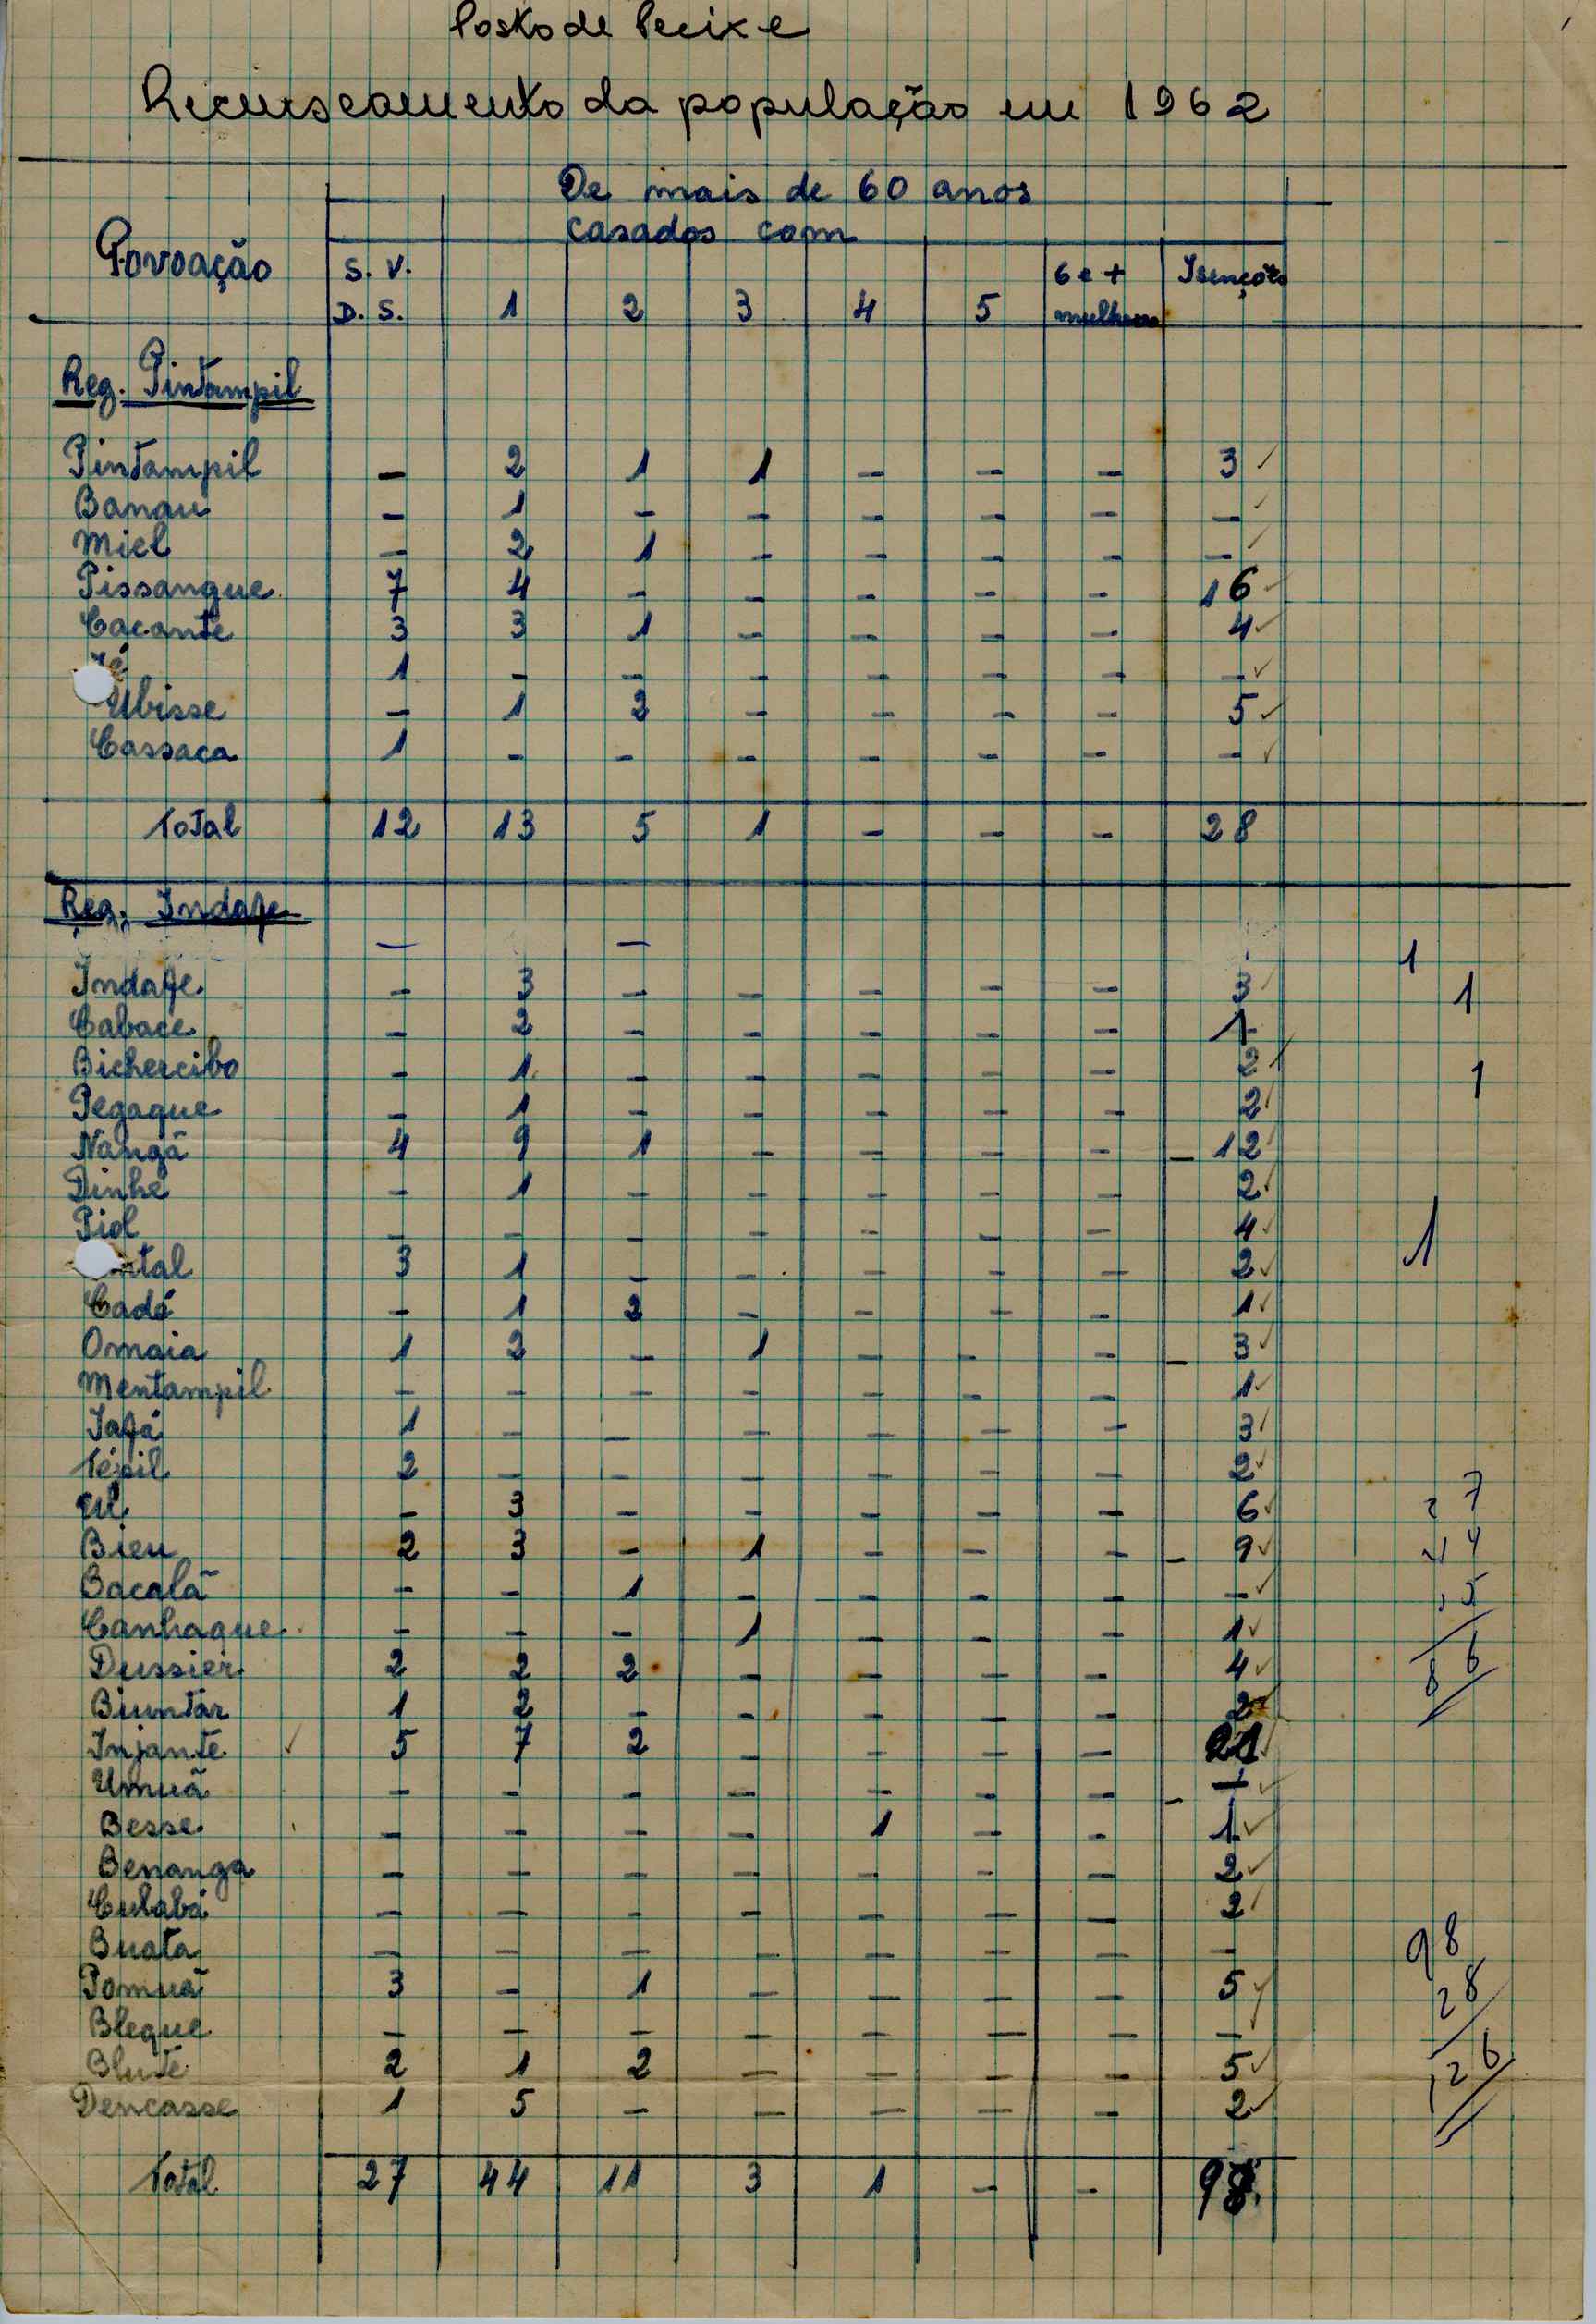 Posto de Peixe
Recenseamento da população em 1962
De mais de 60 anos
casados com
Povoação
S. V. 6 e + Isenções
D. S. 1 2 3 4 5 mulheres
Reg. Pintampil
Pintampil – 2 1 1 – – – 3 ✓
Banau – 1 – – – – – – ✓
Miel – 2 1 – – – – – ✓
Pissangue 7 4 – – – – – 16 ✓
Cacante 3 3 1 – – – – 4 ✓
1 – – – – – – – ✓
Ubisse – 1 2 – – – – 5 ✓
Cassaca 1 – – – – – – – ✓
Total 12 13 5 1 – – – 28
Reg. Indafe
– – 1
Indafe – 3 – – – – – 3 ✓ 1
Cabace – 2 – – – – – 1
Bichercibo – 1 – – – – – 2 ✓ 1
Pegaque – 1 – – – – – 2 ✓
Nangã 4 9 1 – – – – 12 ✓
Dinhe – 1 – – – – – 2 ✓
Piol – – – – – – – 4 ✓ 1
ntal 3 1 – – – – – 2 ✓
Cadé – 1 2 – – – – 1 ✓
Omaia 1 2 – 1 – – – 3 ✓
Mentampil – – – – – – – 1 ✓
Iafá 1 – – – – – – 3 ✓
Tépil 2 – – – – – – 2 ✓
Ul – 3 – – – – – 6 ✓ 27
Bieu 2 3 – 1 – – – 9 ✓ 44
Bacalã – – 1 – – – – – ✓ 15
Canhaque – – – 1 – – – 1 ✓
Dussier 2 2 2 – – – – 4 ✓ 86
Biuntar 1 2 – – – – – 2 ✓
Injante ✓ 5 7 2 – – – – 21 ✓
Umuã – – – – – – – – ✓
Besse – – – – 1 – – 1 ✓
Benanga – – – – – – – 2 ✓
Culabá – – – – – – – 2 ✓
Buata – – – – – – – – 98
Pomuã 3 – 1 – – – – 5 ✓ 28
Bleque – – – – – – – –
Blute 2 1 2 – – – – 5 ✓ 126
Dencasse 1 5 – – – – – 2 ✓
Total 27 44 11 3 1 – – 98